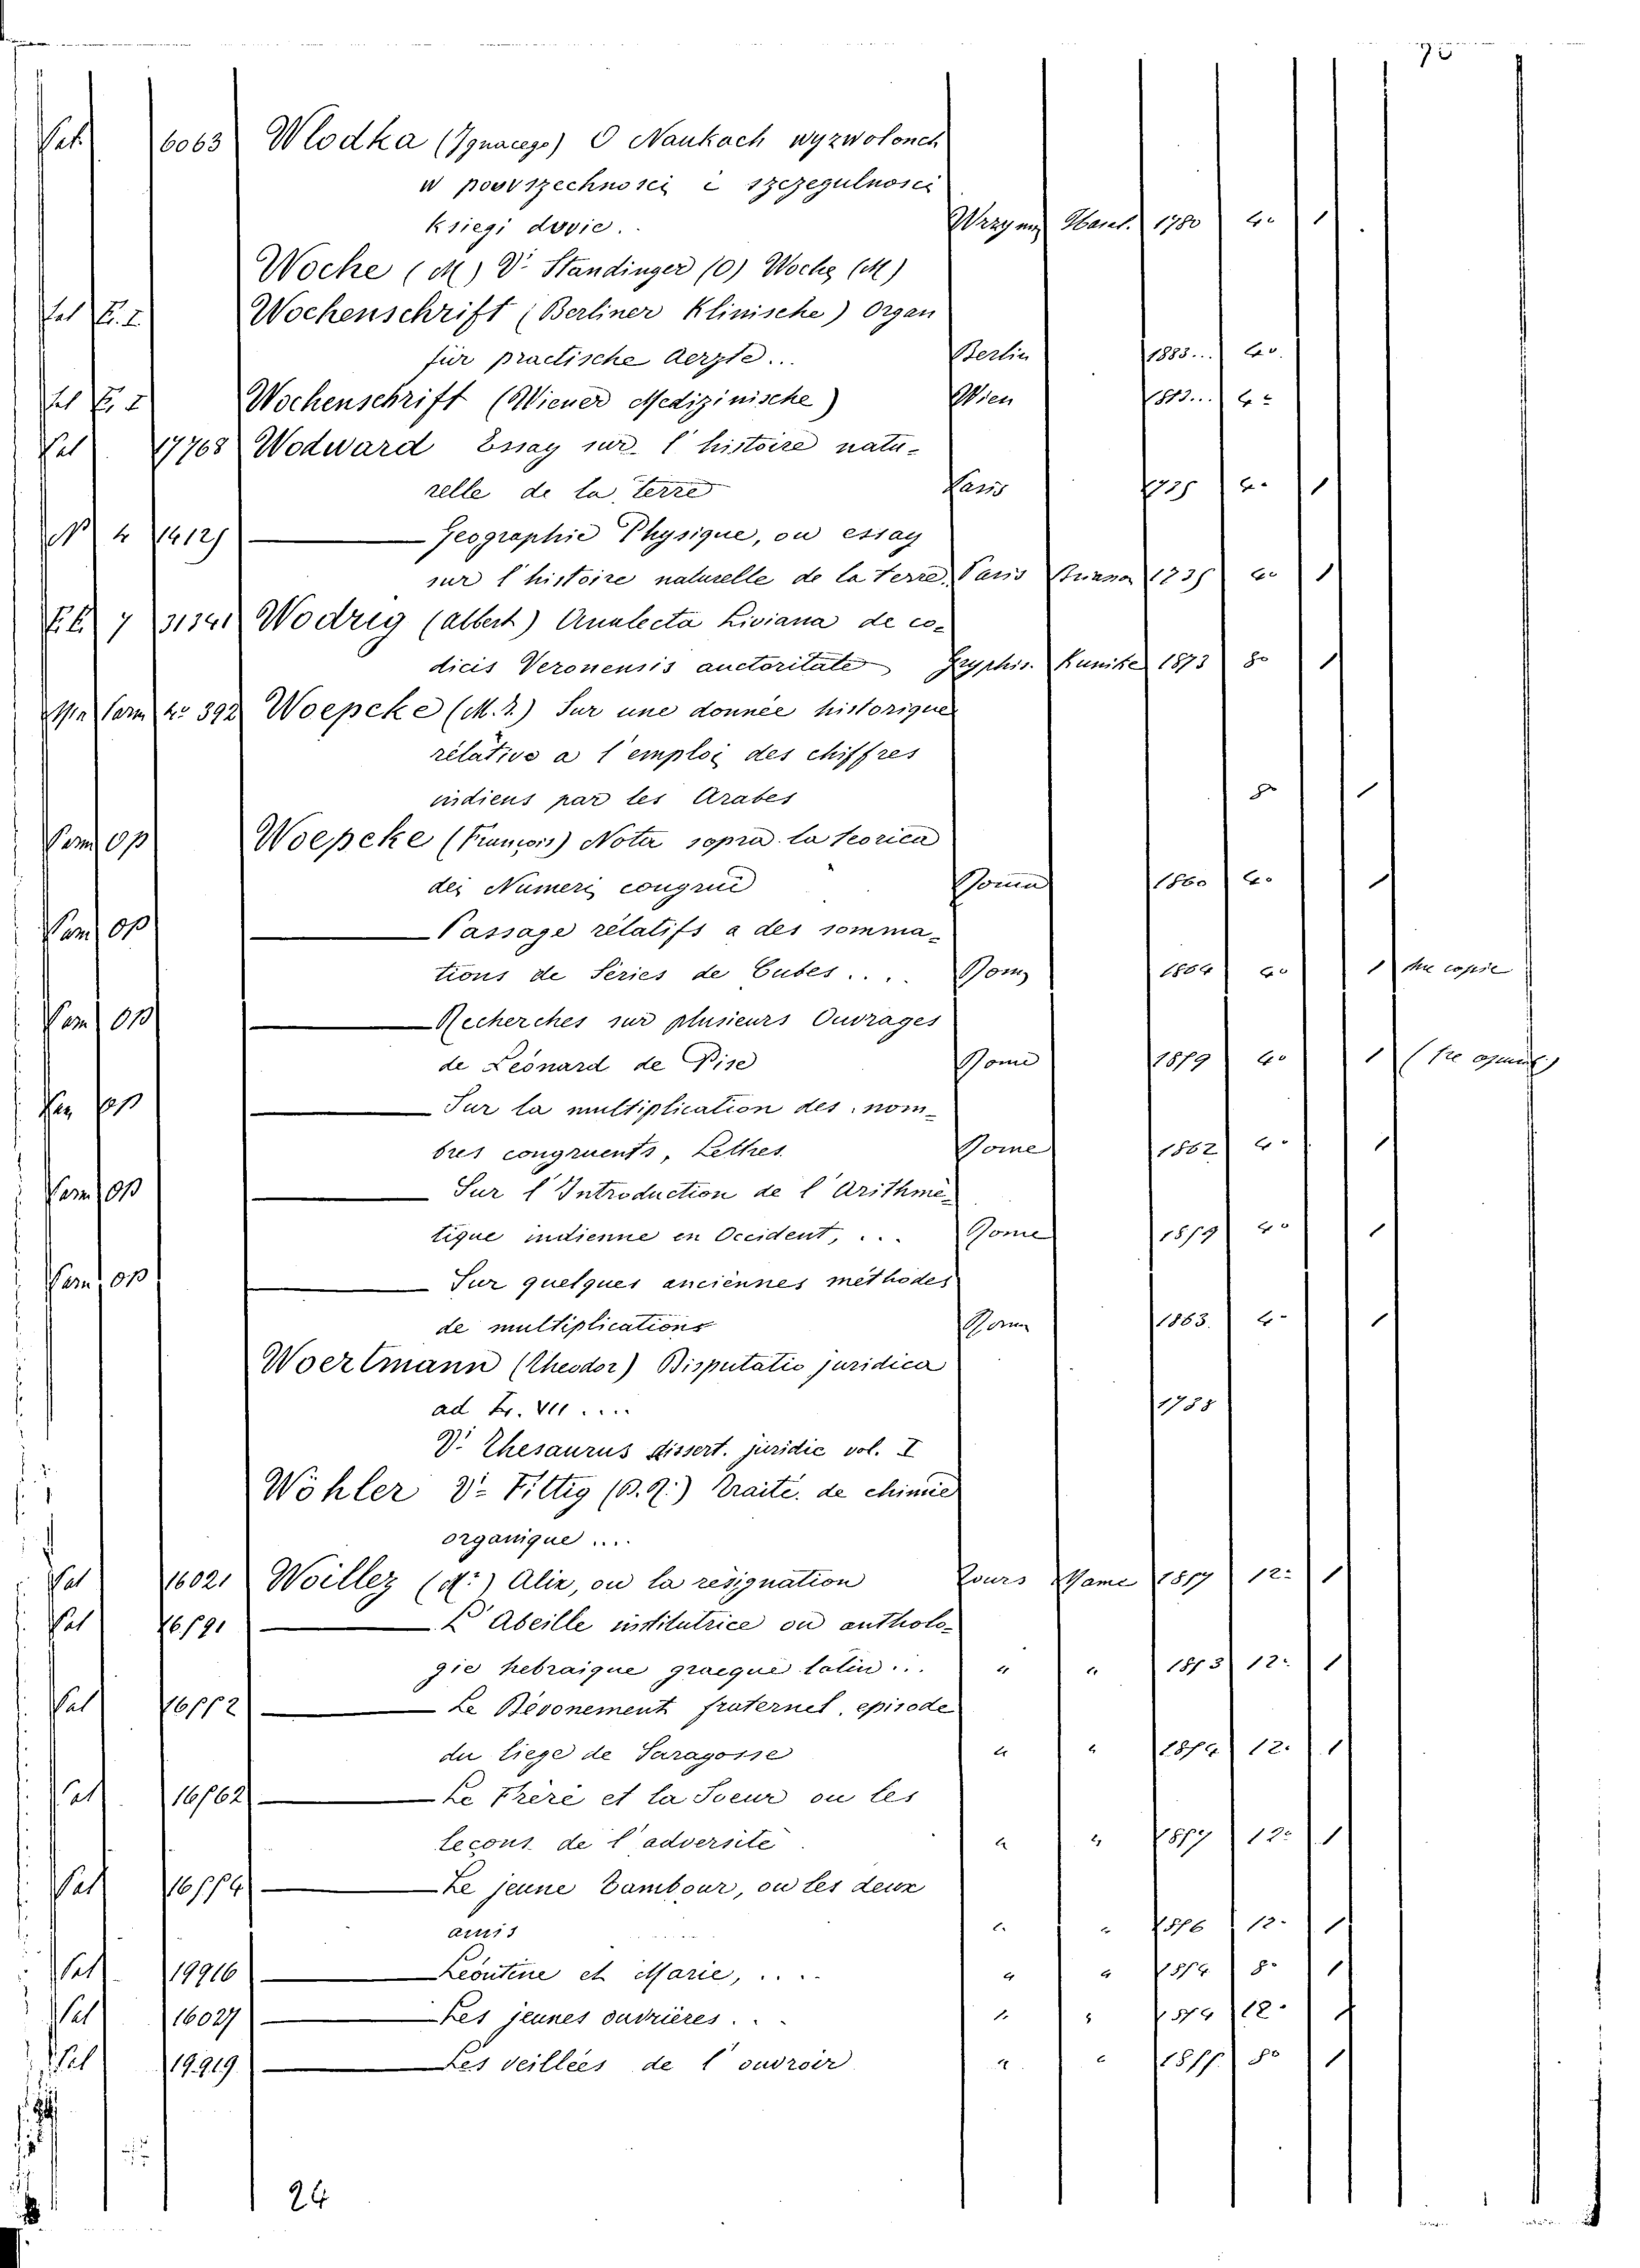 Vat 6063 Wlodka (Ignacego) O Naukach wyzwolonch
w powszechnosci i szczegulnosci
ksiegi dwie. 1780 4° 1
Woche (M) V. Standinger (O) Woche (M)
Wochenschrift (Berliner Klinische) Organ
für practische Aerzte... Berlin 1883... 4°
Wochenschrift (Wiener Medizinische) Wien 4°
Vat 17768 Wodward Essay sur l'histoire natu-
relle de la terre Paris 1735 4° 1
Geographie Physique, ou essay
sur l'histoire naturelle de la terre Paris 1735 4° 1
7 31341 Wodrig (Albert) Analecta Liviana de co-
dicis Veronensis auctoritate Gryphis. Kunike 1873 8° 1
392 Woepcke (M. F.) Sur une donnée historique
rélative a l'emploi des chiffres
indiens par les Arabes 8° 1
Bom op Woepcke (François) Nota sopra la teorica
dei Numeri congrui Roma 1860 4° 1
Bom op — Passage rélatifs a des somma-
tions de Séries de Cubes.... Rom 1864 4° 1 copie
Bom op — Recherches sur plusieurs Ouvrages
de Léonard de Pise Rome 1859 4° 1
Bom op — Sur la multiplication des nom-
bres congruents, Lettres Rome 1862 4° 1
Bom op — Sur l'Introduction de l'Arithmé-
tique indienne en Occident, ... Rome 1859 4° 1
Bom op — Sur quelques anciénnes méthodes
de multiplications Rom 1863. 4° 1
Woertmann (Theodor) Disputatio juridica
ad Fr. VII .... 1758
V. Thesaurus dissert. juridic vol. I
Wöhler V. Fittig (B. R.) Traité de chimie
organique ....
Vat 16021 Woillez (Me) Alix, ou la résignation Tours Mame 1857 12° 1
Vat 16591 — L'Abeille institutrice ou antholo-
gie hebraique graeque latin... " " 1853 12° 1
Vat 16552 — Le Dévonement fraternel, episode
du siege de Saragosse " " 1854 12° 1
Vat 16562 — Le Frère et la Soeur ou les
lecons de l'adversité " " 1857 12° 1
Vat 16554 — Le jeune Tambour, ou les deux
amis " " 1856 12° 1
Vat 19916 — Leóntine et Marie, .... " " 1854 8° 1
Vat 16027 — Les jeunes ouvrières... " " 1854 12° 1
Vat 19919 — Les veillées de l'ouvroir " " 1855 8° 1
24